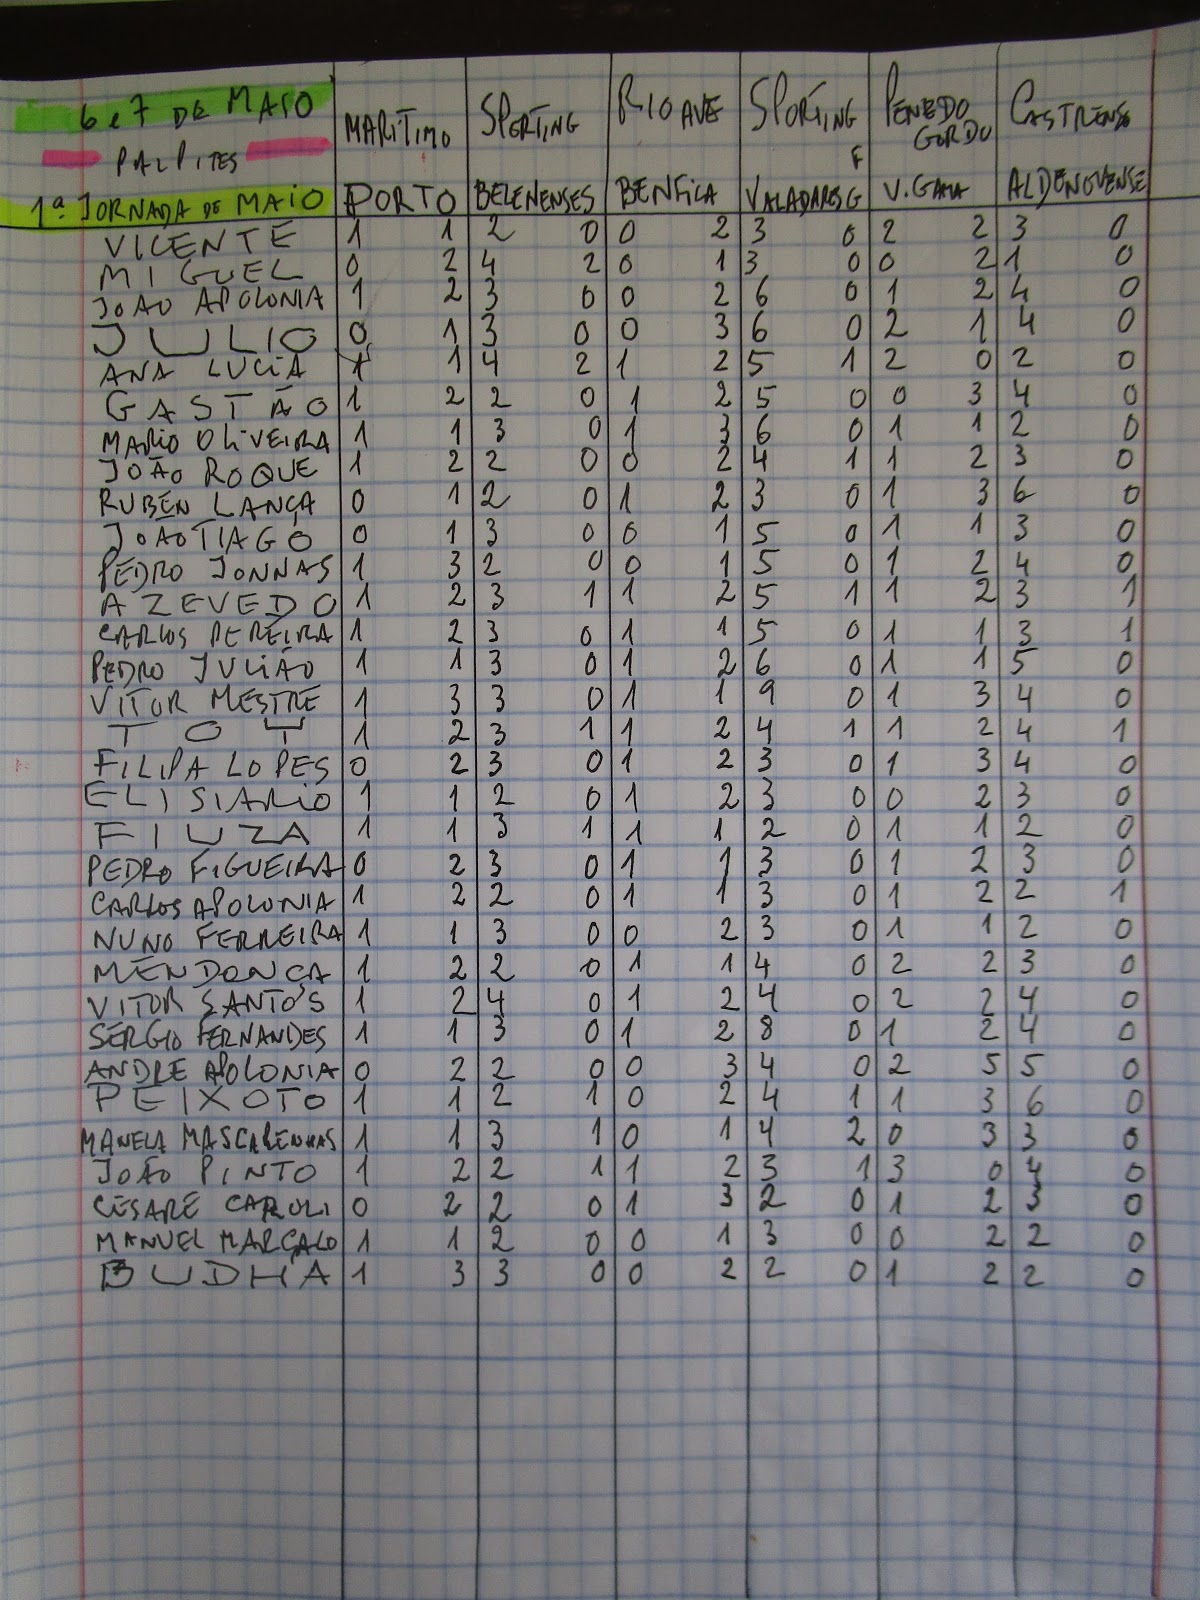 6 e 7 DE MAIO MARITIMO SPORTING RIO AVE SPORTING F PENEDO GORDO CASTRENSE
PALPITES
1ª JORNADA DE MAIO PORTO BELENENSES BENFICA VALADARES G V. GAIA ALDENOVENSE
VICENTE 1 1 2 0 0 2 3 0 2 2 3 0
MIGUEL 0 2 4 2 0 1 3 0 0 2 1 0
JOÃO APOLONIA 1 2 3 0 0 2 6 0 1 2 4 0
JULIO 0 1 3 0 0 3 6 0 2 1 4 0
ANA LUCIA 1 1 4 2 1 2 5 1 2 0 2 0
GASTÃO 1 2 2 0 1 2 5 0 0 3 4 0
MARIO OLIVEIRA 1 1 3 0 1 3 6 0 1 1 2 0
JOÃO ROQUE 1 2 2 0 0 2 4 1 1 2 3 0
RUBEN LANÇA 0 1 2 0 1 2 3 0 1 3 6 0
JOÃO TIAGO 0 1 3 0 0 1 5 0 1 1 3 0
PEDRO JONNAS 1 3 2 0 0 1 5 0 1 2 4 0
AZEVEDO 1 2 3 1 1 2 5 1 1 2 3 1
CARLOS PEREIRA 1 2 3 0 1 1 5 0 1 1 3 1
PEDRO JULIÃO 1 1 3 0 1 2 6 0 1 1 5 0
VITOR MESTRE 1 3 3 0 1 1 9 0 1 3 4 0
TOY 1 2 3 1 1 2 4 1 1 2 4 1
FILIPA LOPES 0 2 3 0 1 2 3 0 1 3 4 0
ELISIARIO 1 1 2 0 1 2 3 0 0 2 3 0
FIUZA 1 1 3 1 1 1 2 0 1 1 2 0
PEDRO FIGUEIRA 0 2 3 0 1 1 3 0 1 2 3 0
CARLOS APOLONIA 1 2 2 0 1 1 3 0 1 2 2 1
NUNO FERREIRA 1 1 3 0 0 2 3 0 1 1 2 0
MENDONÇA 1 2 2 0 1 1 4 0 2 2 3 0
VITOR SANTOS 1 2 4 0 1 2 4 0 2 2 4 0
SERGIO FERNANDES 1 1 3 0 1 2 8 0 1 2 4 0
ANDRE APOLONIA 0 2 2 0 0 3 4 0 2 5 5 0
PEIXOTO 1 1 2 1 0 2 4 1 1 3 6 0
MANELA MASCARENHAS 1 1 3 1 0 1 4 2 0 3 3 0
JOÃO PINTO 1 2 2 1 1 2 3 1 3 0 4 0
CESARE CAROLI 0 2 2 0 1 3 2 0 1 2 3 0
MANUEL MARÇALO 1 1 2 0 0 1 3 0 0 2 2 0
BUDHA 1 3 3 0 0 2 2 0 1 2 2 0